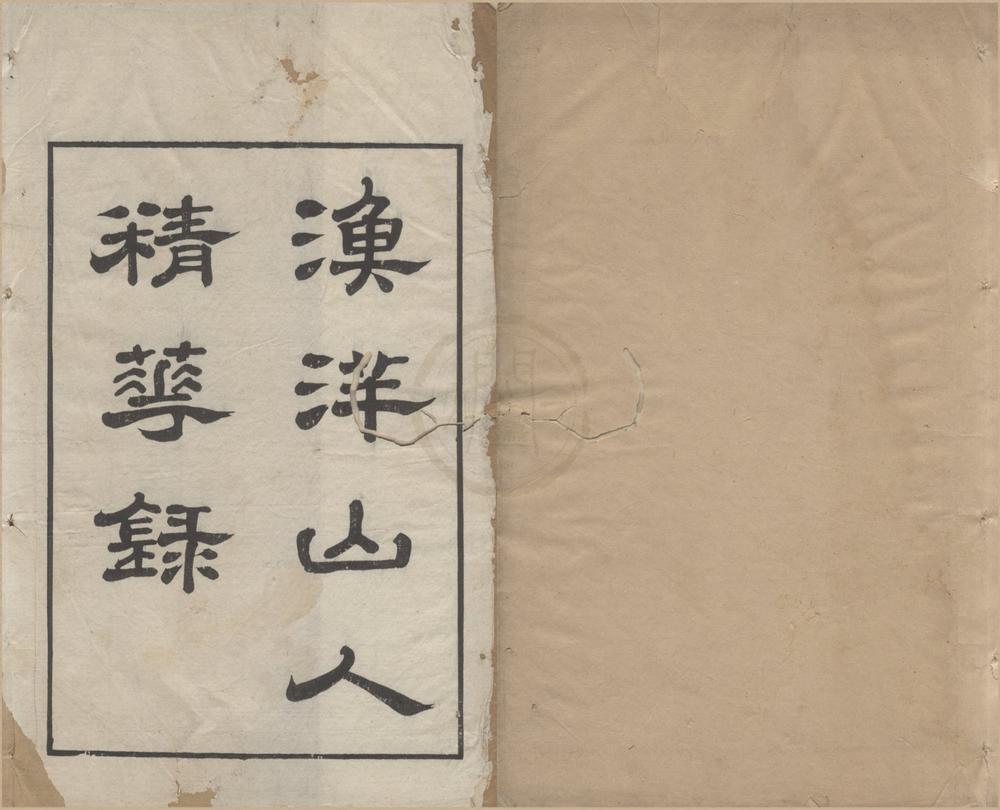 漁洋山人
精華錄